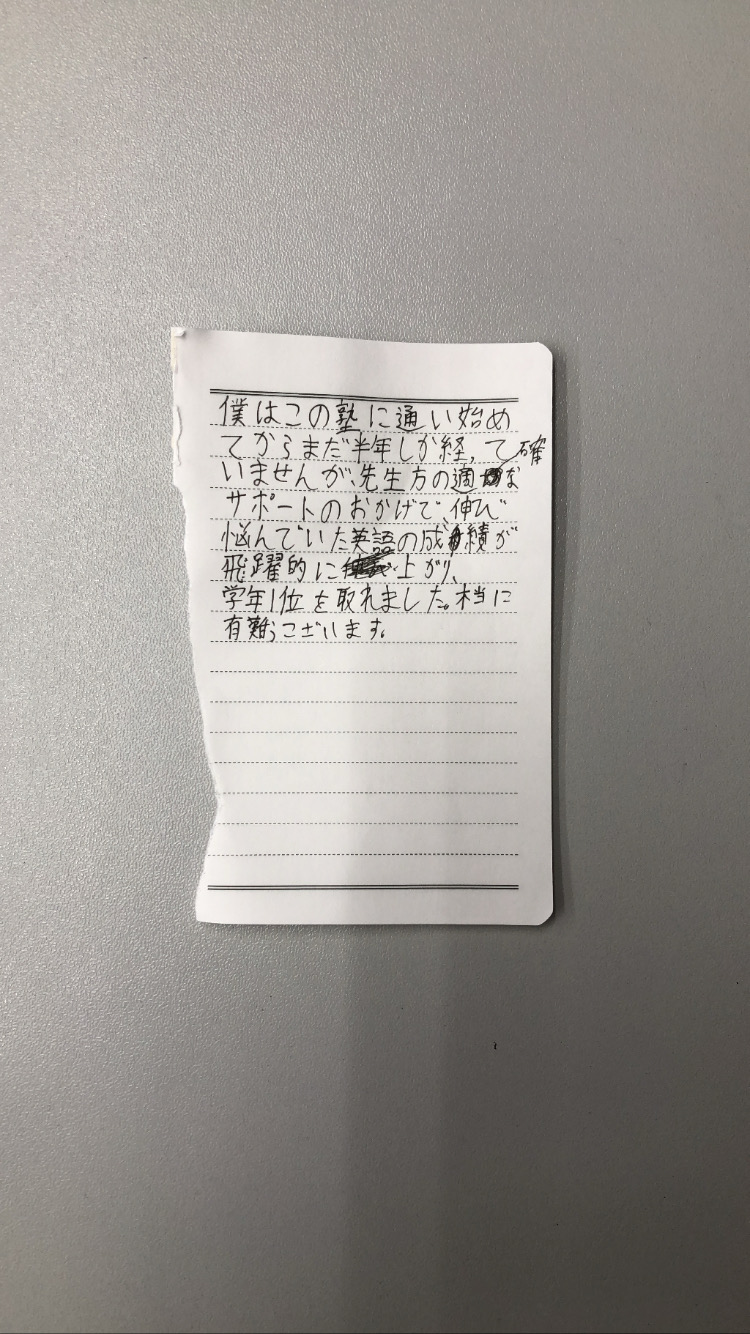 僕はこの塾に通い始め
てからまだ半年しか経って
いませんが、先生方の適確な
サポートのおかげで、伸び
悩んでいた英語の成績が
飛躍的に上がり、
学年1位を取れました。本当に
有難うございます。